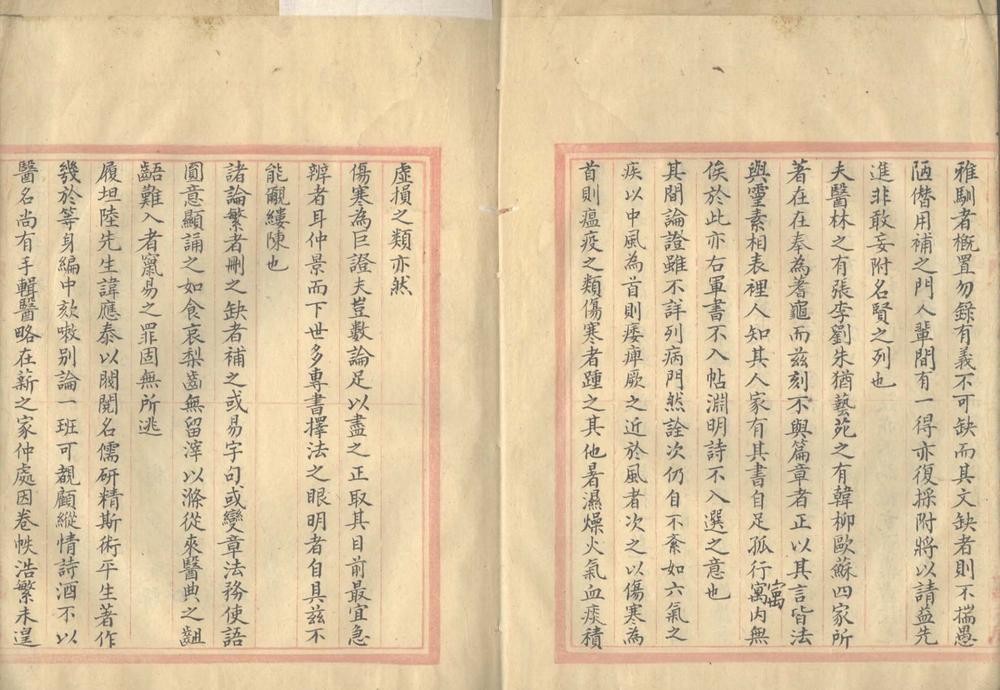 雅馴者概置勿錄有義不可缺而其文缺者則不揣愚
陋僭用補之門人輩間有一得亦復採附將以請益先
進非敢妄附名賢之列也
夫醫林之有張李劉朱猶藝苑之有韓柳歐蘇四家所
著在在奉為蓍龜而茲刻不與篇章者正以其言皆法
與靈素相表裡人知其人家有其書自足孤行寓內無
寓
俟於此亦右軍書不入帖淵明詩不入選之意也
其間論證雖不詳列病門然詮次仍自不紊如六氣之
疾以中風為首則痿痺厥之近於風者次之以傷寒為
首則瘟疫之類傷寒者踵之其他暑濕燥火氣血痰積
虛損之類亦然
傷寒為巨證夫豈數論足以盡之正取其目前最宜急
辨者耳仲景而下世多專書擇法之眼明者自具茲不
能覼縷陳也
諸論繁者刪之缺者補之或易字句或變章法務使語
圓意顯誦之如食哀梨齒無留滓以滌從來醫典之齟
齬難入者竄易之罪固無所逃
履坦陸先生諱應泰以閥閱名儒研精斯術平生著作
幾於等身編中欬嗽别論一班可覩顧縱情詩酒不以
醫名尚有手輯醫略在薪之家仲處因卷帙浩繁未遑